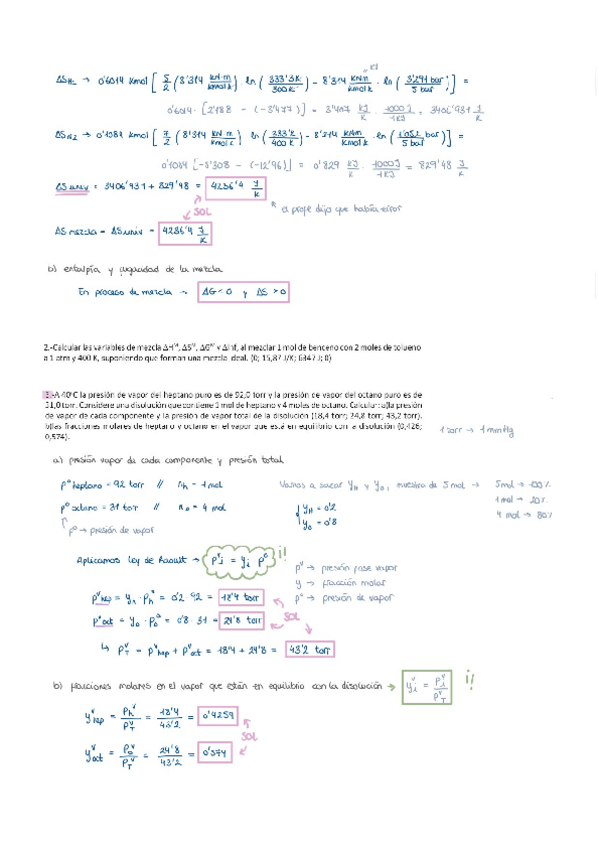 ΔS_H2 → 0'6014 Kmol [ 5/2 (8'314 KN·m/Kmol K) ln (333'3K/300K) - 8'314 KNm/Kmol K · ln (3'291 bar/5 bar) ] =
0'6014 · [2'188 - (-3'477)] = 3'407 KJ/K · 1000J/1KJ = 3406'931 J/K
ΔS_N2 → 0'1084 Kmol [ 7/2 (8'314 KN·m/Kmol K) ln (333'K/400K) - 8'314 KNm/Kmol K · ln (1'051 bar/5 bar) ] =
0'1084 [-5'308 - (-12'96)] = 0'829 KJ/K · 1000J/1KJ = 829'48 J/K
ΔS univ = 3406'931 + 829'48 = 4236'4 J/K
SOL
el profe dijo que había error
ΔS mezcla = ΔS univ = 4236'4 J/K
b) entalpía y fugacidad de la mezcla
En proceso de mezcla → ΔG<0 y ΔS>0
2.-Calcular las variables de mezcla ΔHᴹ, ΔSᴹ, ΔGᴹ y ΔInf, al mezclar 1 mol de benceno con 2 moles de tolueno
a 1 atm y 400 K, suponiendo que forman una mezcla ideal. (0; 15,87 J/K; 6347 J; 0)
3.-A 40°C la presión de vapor del heptano puro es de 92,0 torr y la presión de vapor del octano puro es de
31,0 torr. Considere una disolución que contiene 1 mol de heptano y 4 moles de octano. Calcular: a)la presión
de vapor de cada componente y la presión de vapor total de la disolución (18,4 torr; 24,8 torr; 43,2 torr).
b)las fracciones molares de heptano y octano en el vapor que está en equilibrio con la disolución (0,426;
0,574).
1 torr → 1 mmHg
a) presión vapor de cada componente y presión total
P° heptano = 92 torr // n_h = 1 mol
Vamos a sacar y_H y y_O, nuestra de 5 mol →
5 mol → 100%
1 mol → 20%
4 mol → 80%
P° octano = 31 torr // n_o = 4 mol
y_H = 0'2
y_O = 0'8
P° → presión de vapor
Aplicamos ley de Raoult → P^v_i = y_i P° ¡!
P^v → presión fase vapor
y → fracción molar
P° → presión de vapor
P^v_hep = y_h · P_h° = 0'2 · 92 = 18'4 torr
P^v_oct = y_o · P_o° = 0'8 · 31 = 24'8 torr
SOL
↳ P^v_T = P^v_hep + P^v_oct = 18'4 + 24'8 = 43'2 torr
b) fracciones molares en el vapor que están en equilibrio con la disolución → y^v_i = P^v_i/P^v_T ¡!
y^v_hep = P_h^v/P_T^v = 18'4/43'2 = 0'4259
SOL
y^v_oct = P_o^v/P_T^v = 24'8/43'2 = 0'574